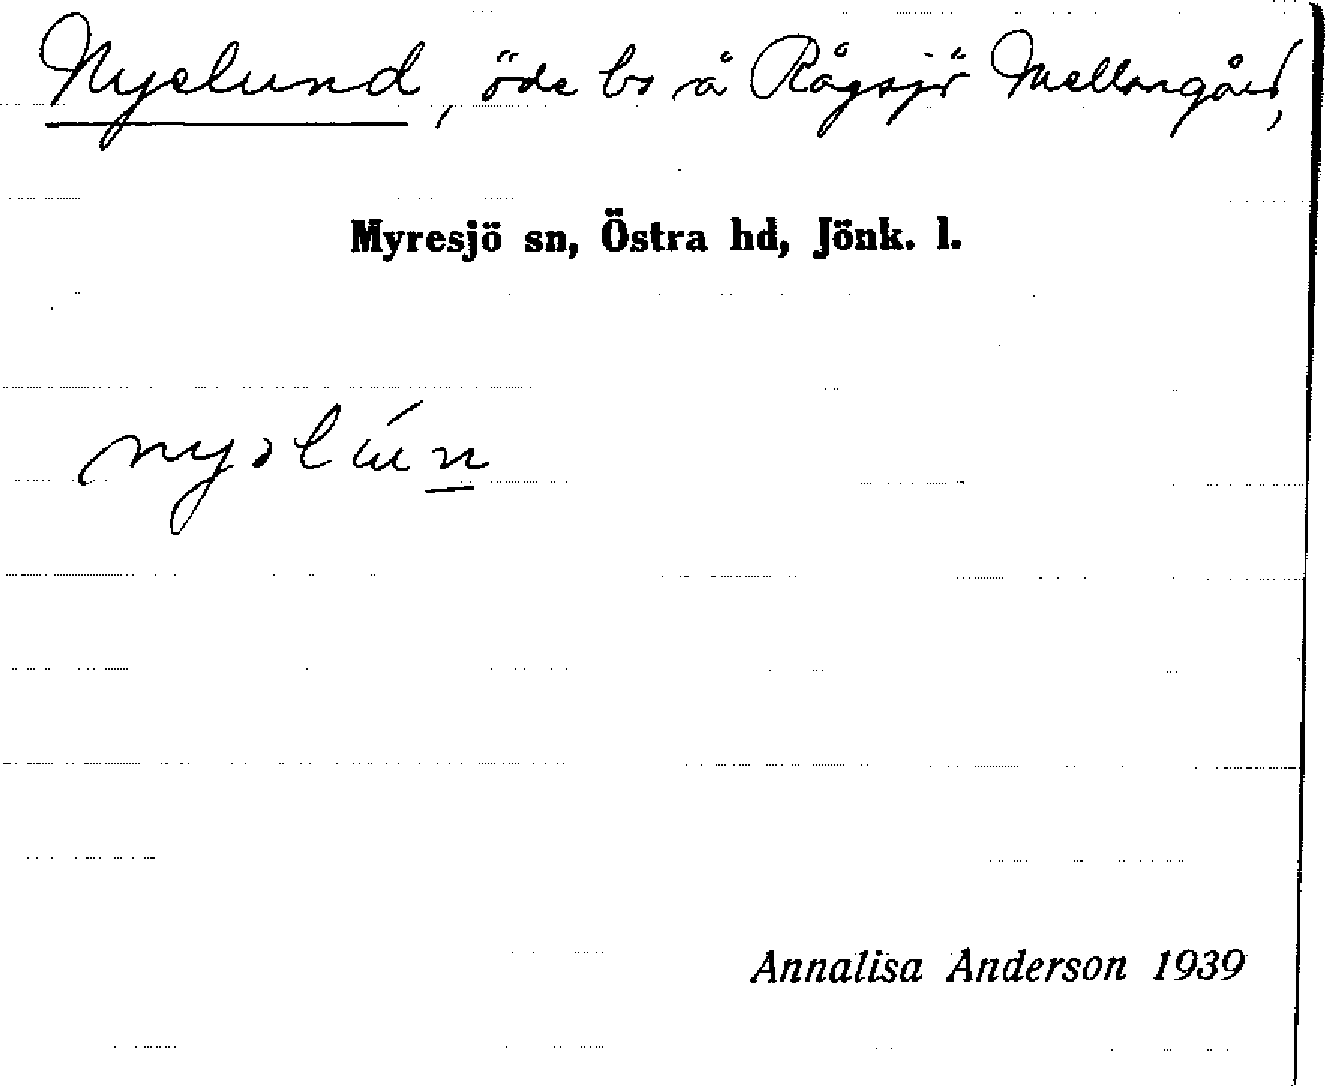 Nyelund, öde bs å Rågsjö Mellangård,
Myresjö sn, Östra hd, Jönk. l.
Annalisa Anderson 1939